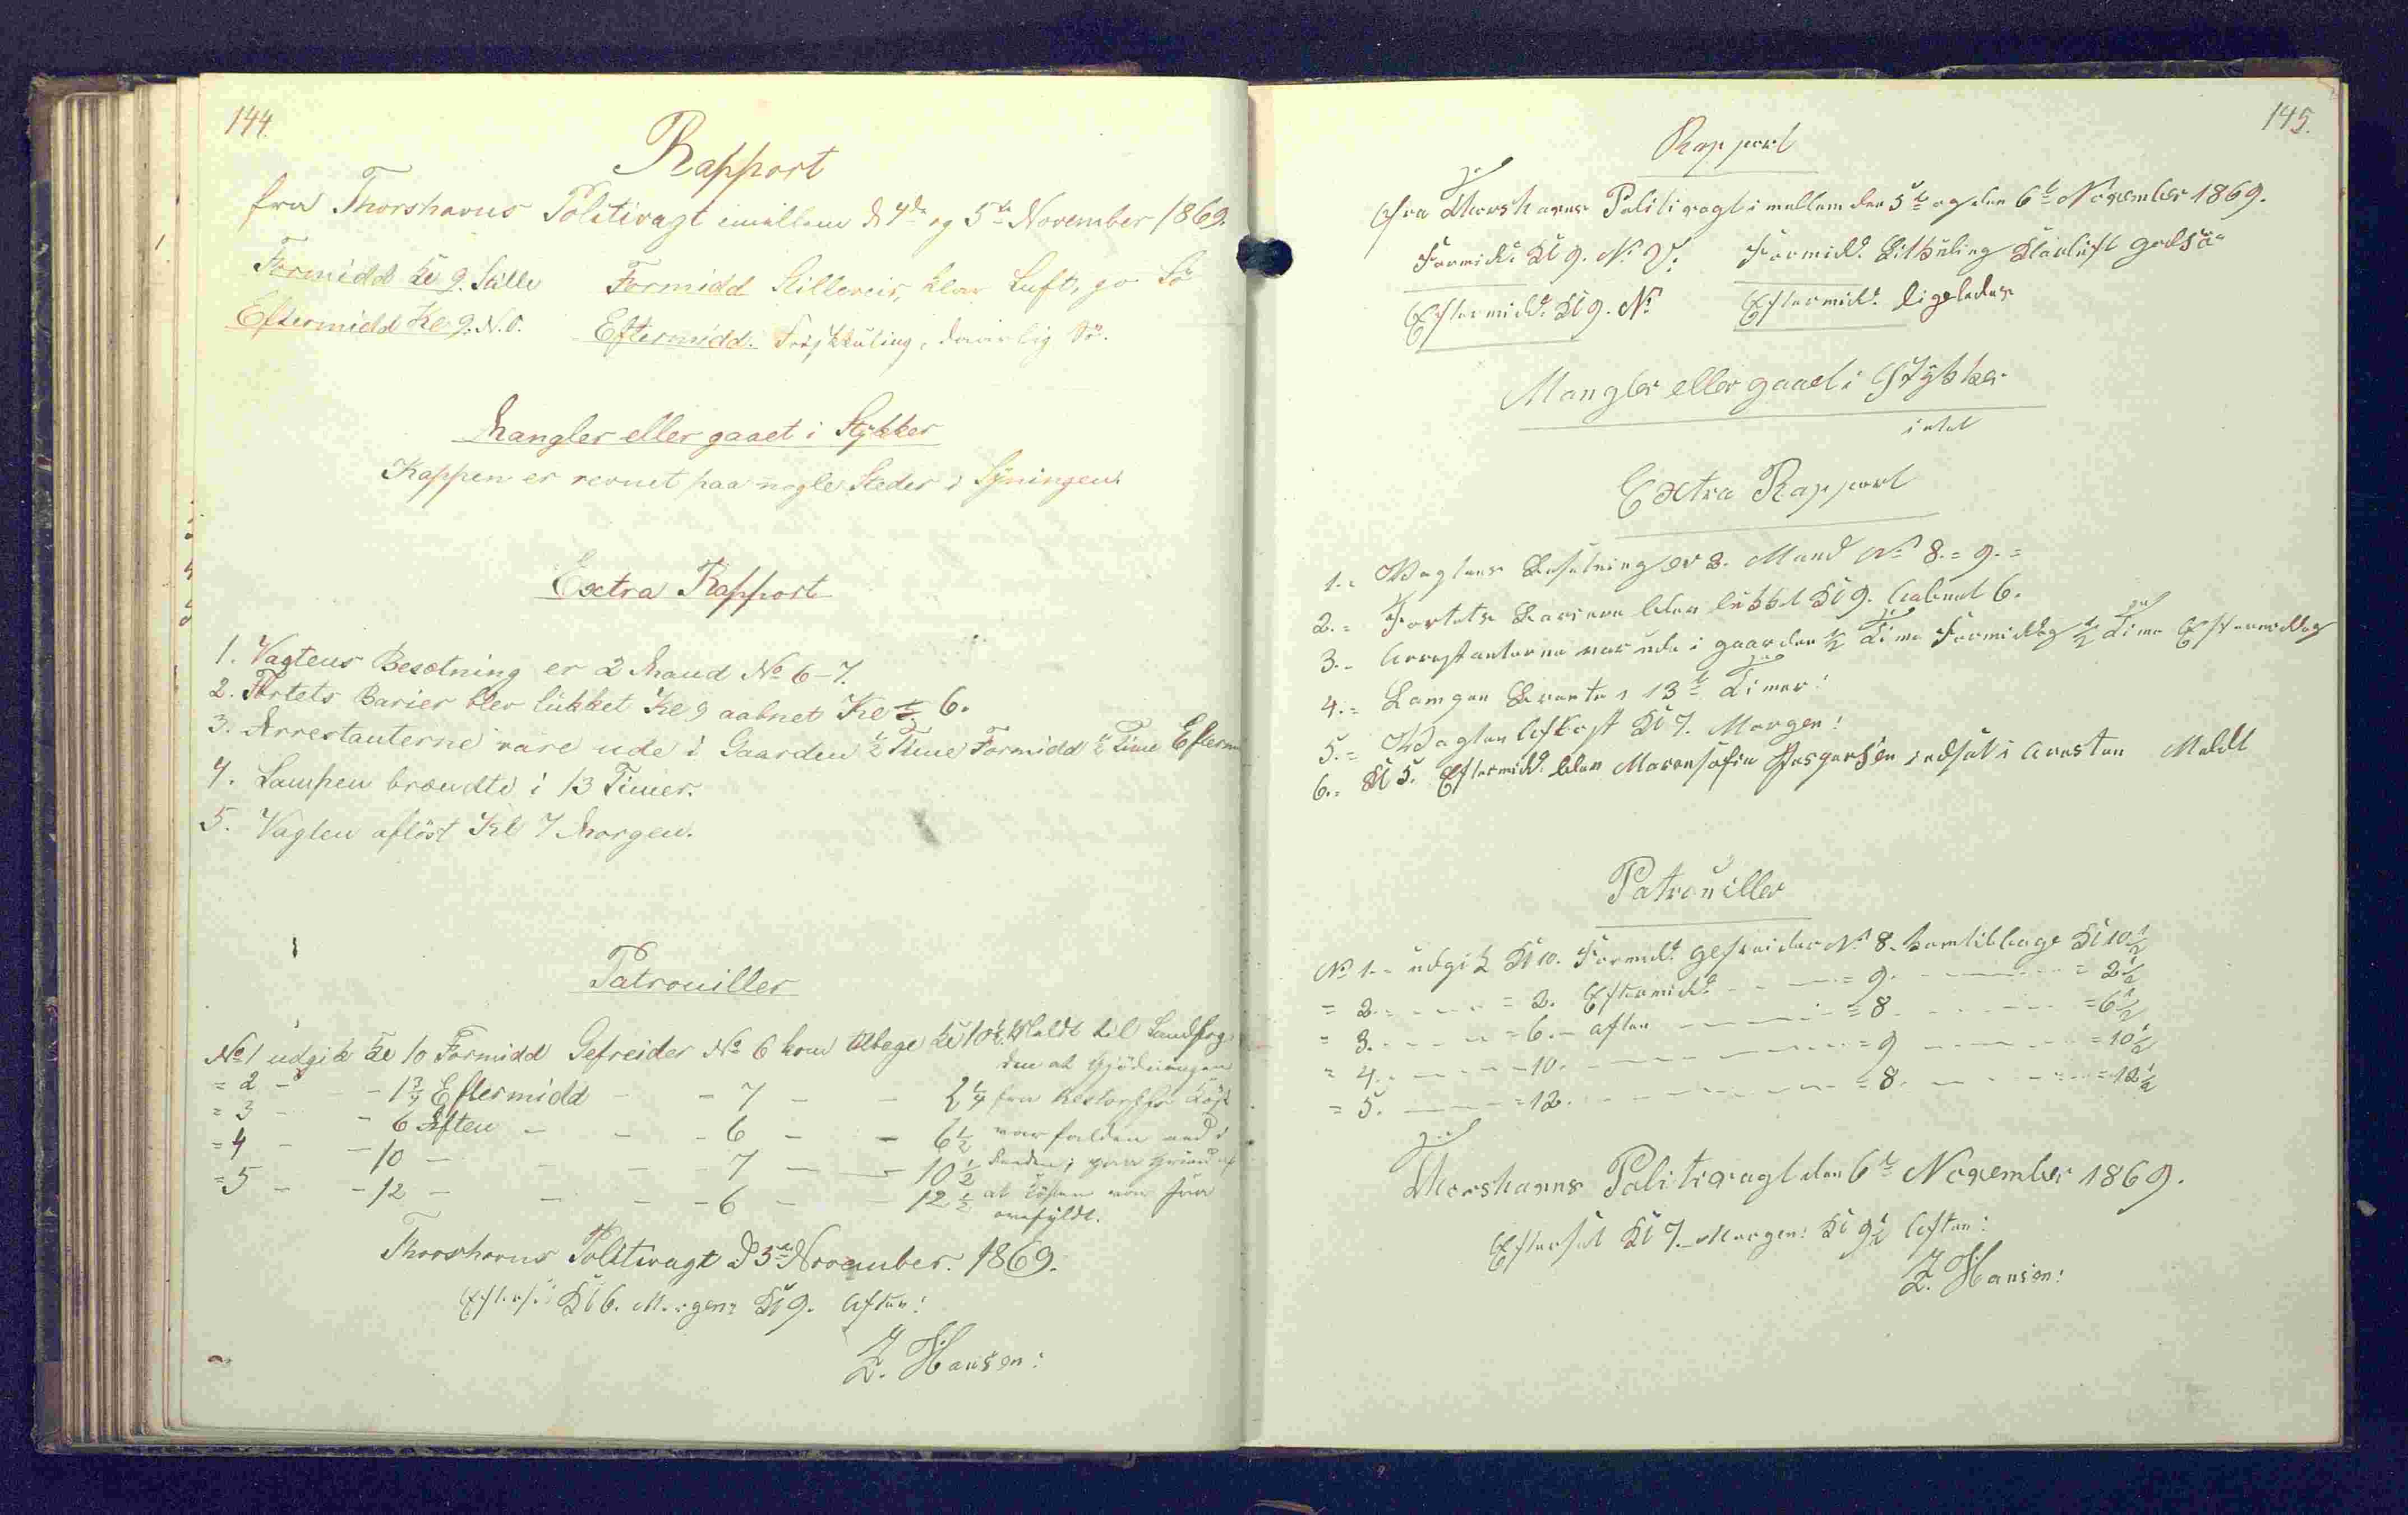 144.
Rapport
fra Thorshavns Politivagt imellem d 4de og 5te November 1869.
Formidd Kl 9. Stille Formidd Stilleveir, klar Luft, go Sö
Eftermidd Kl 9. N.O. Eftermidd. Friskküling, daarlig Sö.
Mangler eller gaaet i Stykker
Kappen er revnet paa nogle Steder i Syningen.
Extra Rapport
1. Vagtens Besætning er 2 Mand No 6-7.
2. Fortets Barier blev lükket Kl 9 aabnet Kl ½ 6.
3. Arrestanterne vare ude i Gaarden ½ Time Formidd ½ Time Efterm
4. Lampen brændte i 13 Timer.
5. Vagten aflöst Kl 7 Morgen.
Patrouiller
No 1 udgik Kl 10 Formidd Gefreider No 6 kom tilbage Kl 10½ Meldt til Landfog
den at Gjödningen
= 2 - - 1¾ Eftermidd - - 7 - - 2¼ fra
= 3 - - 6 Aften - - - 6 - - 6½ var falden ned i
= 4 - - 10 - - - 7 - - 10½ paa Grund af
= 5 - - 12 - - - 6 - - 12½ at var saa
overfyldt.
Thorshavns Politivagt d 5te November 1869.
Efterset Kl 6. Morgen Kl 9. Aften:
Z. Hansen:
145.
Rapport
fra Thorshavns Politivagt imellem den 5te og den 6te November 1869.
Formidd. Kl 9. N. V. Formidd. Litküling Klarluft godsö
Eftermidd. Kl 9. N. Eftermidd. ligeledes
Mangler eller gaaet i Stykker
intet
Extra Rapport
1. Vagtens Besetning er 2. Mand No 8. = 9. =
2. = Fortets Bariere blev lükket Kl 9. Aabnet 6.
3. - Arrestanterne var ude i gaarden ½ Time Formiddag ½ Time Eftermiddag
4. = Lampen Brænte i 13 Timer:
5. = Vagten Aflöst Kl 7. Morgen:
6. = Kl 5. Eftermidd. blev Marensofie Jespersen indsat i Aresten Meldt
Patrouiller
No 1. - udgik Kl 10. Formidd. gefreider No 8. kom tilbage Kl 10½
= 2. - - - = 2. Eftermidd. - - = 9. - - - = 2½
= 3. - - - = 6. - aften - - - = 8 - - - = 6½
= 4. - - - 10. - - - = 9 - - - = 10½
= 5. - - - = 12. - - - = 8. - - - = 12½
Thorshavns Politivagt den 6te November 1869.
Efterset Kl 7. Morgen: Kl 9½ Aften:
Z. Hansen: